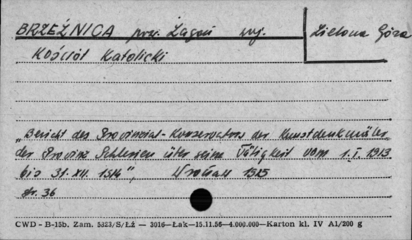 BRZEŹNICA pow. Żagań woj. Zielona Góra
Kościół Katolicki
„Bericht des Provinzial-Konservators der Kunstdenkmäler
der Provinz Schlesien über seine Tätigkeit vom 1.I.1913
bis 31.XII. 1914", Breslau 1915
str. 36
CWD - B-15b. Zam. 5823/S/Łż — 3016—Łak—15.11.56—4.000.000—Karton kl. IV A1/200 g